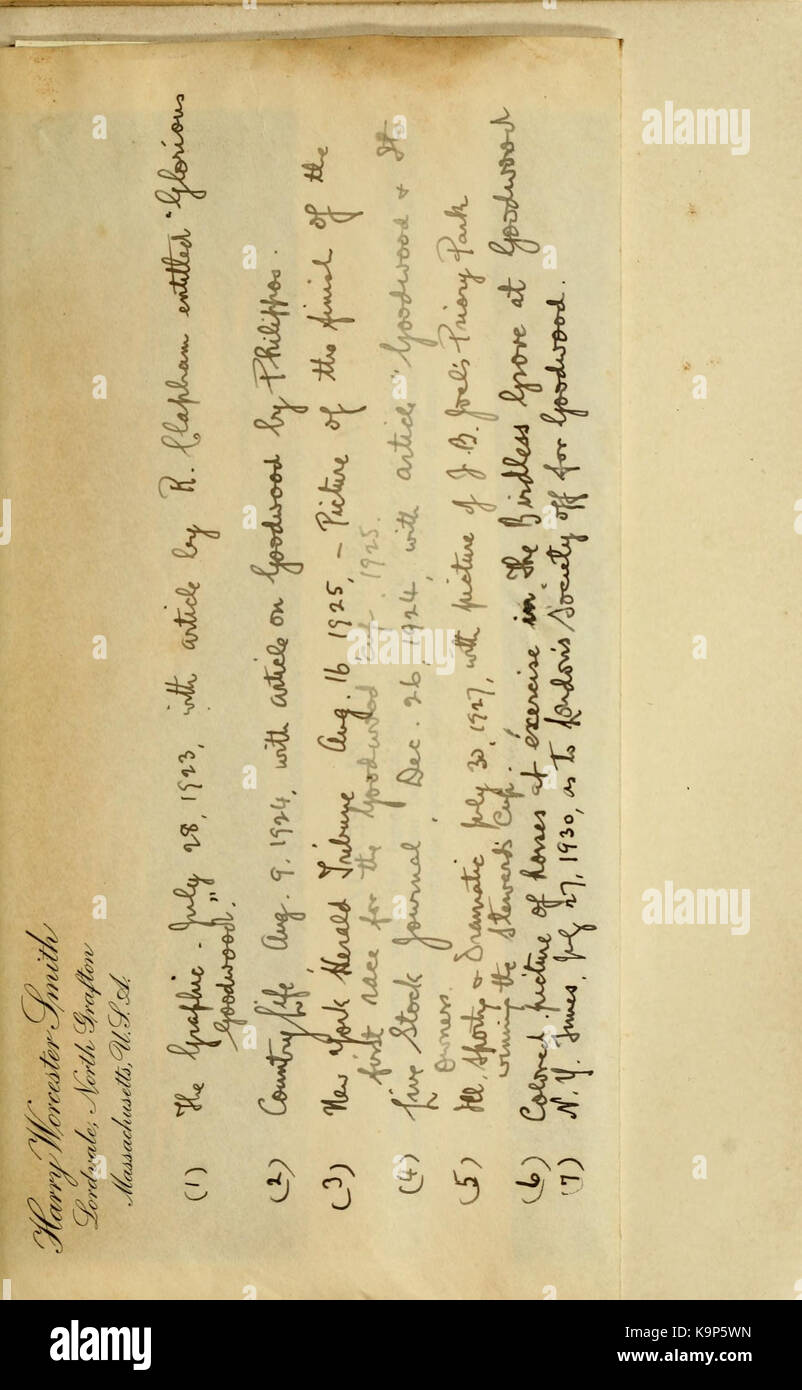 Harry Worcester Smith
Lordvale, North Grafton
Massachusetts, U.S.A.
(1) The Graphic - July 28, 1923, with article by R. Clapham entitled "Glorious
Goodwood."
(2) Country Life Aug. 9, 1924, with article on Goodwood by Philippos.
(3) New York Herald Tribune Aug. 16 1925, - Picture of the finish of the
first race for the Goodwood Cup, 1925.
(4) Live Stock Journal, Dec. 26, 1924, with article "Goodwood & Its
Owners.
(5) Ill. Sporting & Dramatic July 30, 1927, with picture of J. B. Joel's Priory Park
winning the Stewards Cup.
(6) Colored picture of horses at exercise in "The Birdless Grove" at Goodwood
(7) N. Y. Times, July 27, 1930, as to London's Society off for Goodwood.
alamy
alamy stock photo
K9P5WN
www.alamy.com